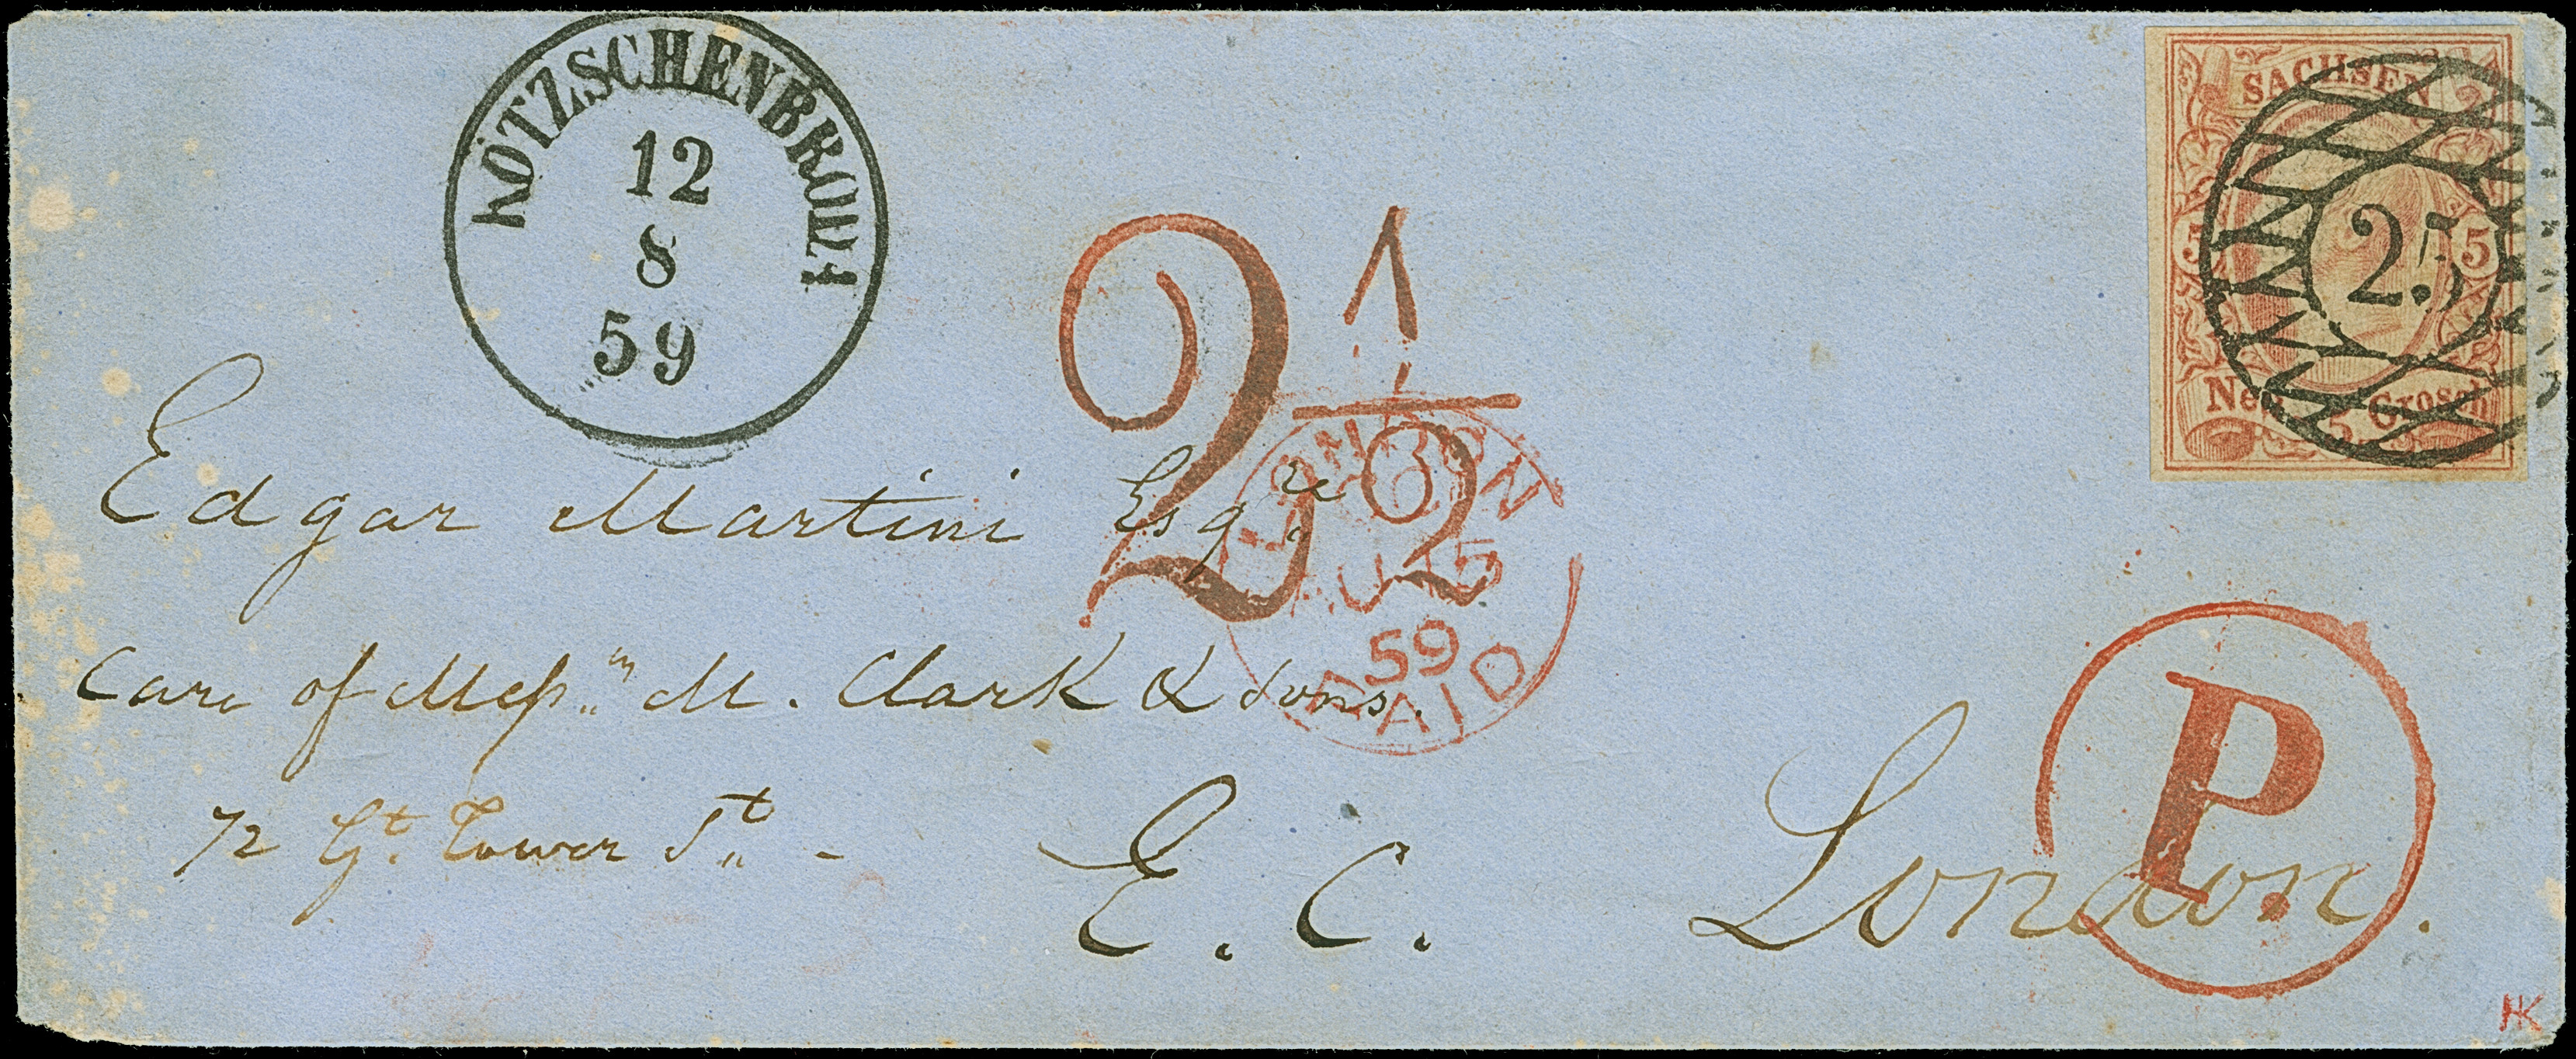 KÖTZSCHENBRODA
12
8
59
SACHSEN
5 5
25
Neu Grosch
5
2 1/2
LONDON
AU 15
59
PAID
P.
Edgar Martini Esqre
Care of Messrs M. Clark & Sons.
72 Gt. Tower St -
E. C. London.
HK